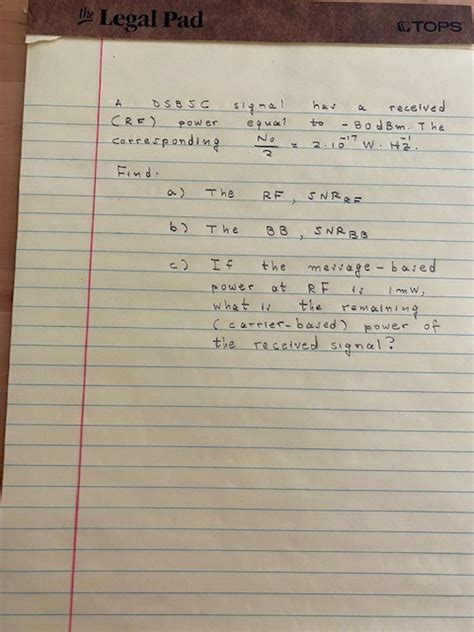 the Legal Pad
TOPS
A DSBSC signal has a received
(RF) power equal to -80 dBm. The
corresponding N₀/2 = 2.10⁻¹⁷ W. Hz⁻¹.
Find.
a) The RF, SNR_RF
b) The BB, SNR_BB
c) If the message-based
power at RF is 1mW,
what is the remaining
(carrier-based) power of
the received signal?